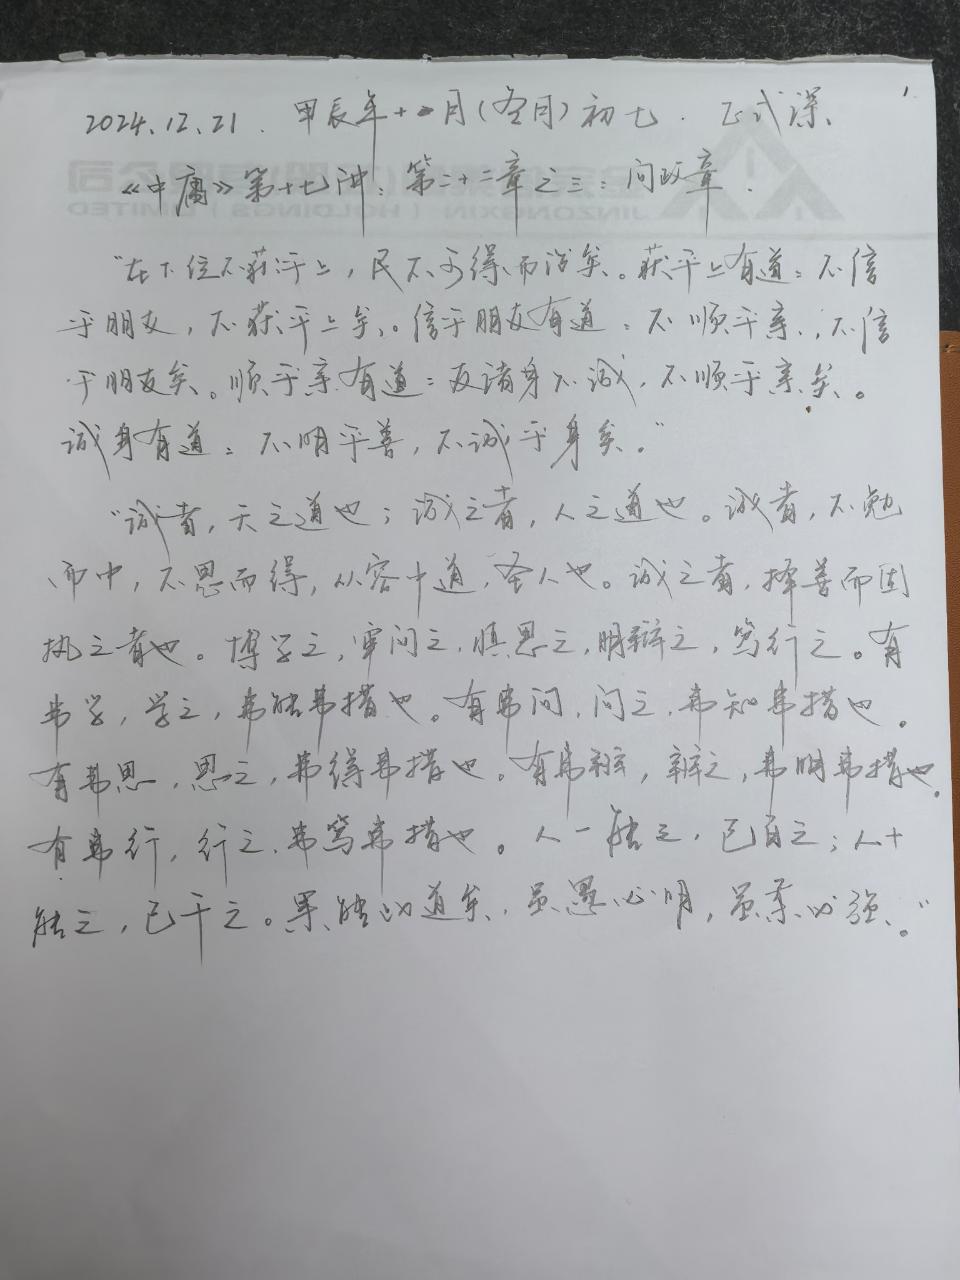 1
2024.12.21. 甲辰年十一月(冬月)初七. 正式课
《中庸》第十七讲:第二十二章之三:问政章.
"在下位不获乎上,民不可得而治矣。获乎上有道:不信
乎朋友,不获乎上矣。信乎朋友有道:不顺乎亲,不信
乎朋友矣。顺乎亲有道:反诸身不诚,不顺乎亲矣。
诚身有道:不明乎善,不诚乎身矣。"
"诚者,天之道也;诚之者,人之道也。诚者,不勉
而中,不思而得,从容中道,圣人也。诚之者,择善而固
执之者也。博学之,审问之,慎思之,明辩之,笃行之。有
弗学,学之,弗能弗措也。有弗问,问之,弗知弗措也。
有弗思,思之,弗得弗措也。有弗辨,辨之,弗明弗措也.
有弗行,行之,弗笃弗措也。人一能之,己百之;人十
能之,己千之。果能此道矣,虽愚必明,虽柔必强。"
JINZONGXIN (HOLDINGS) LIMITED